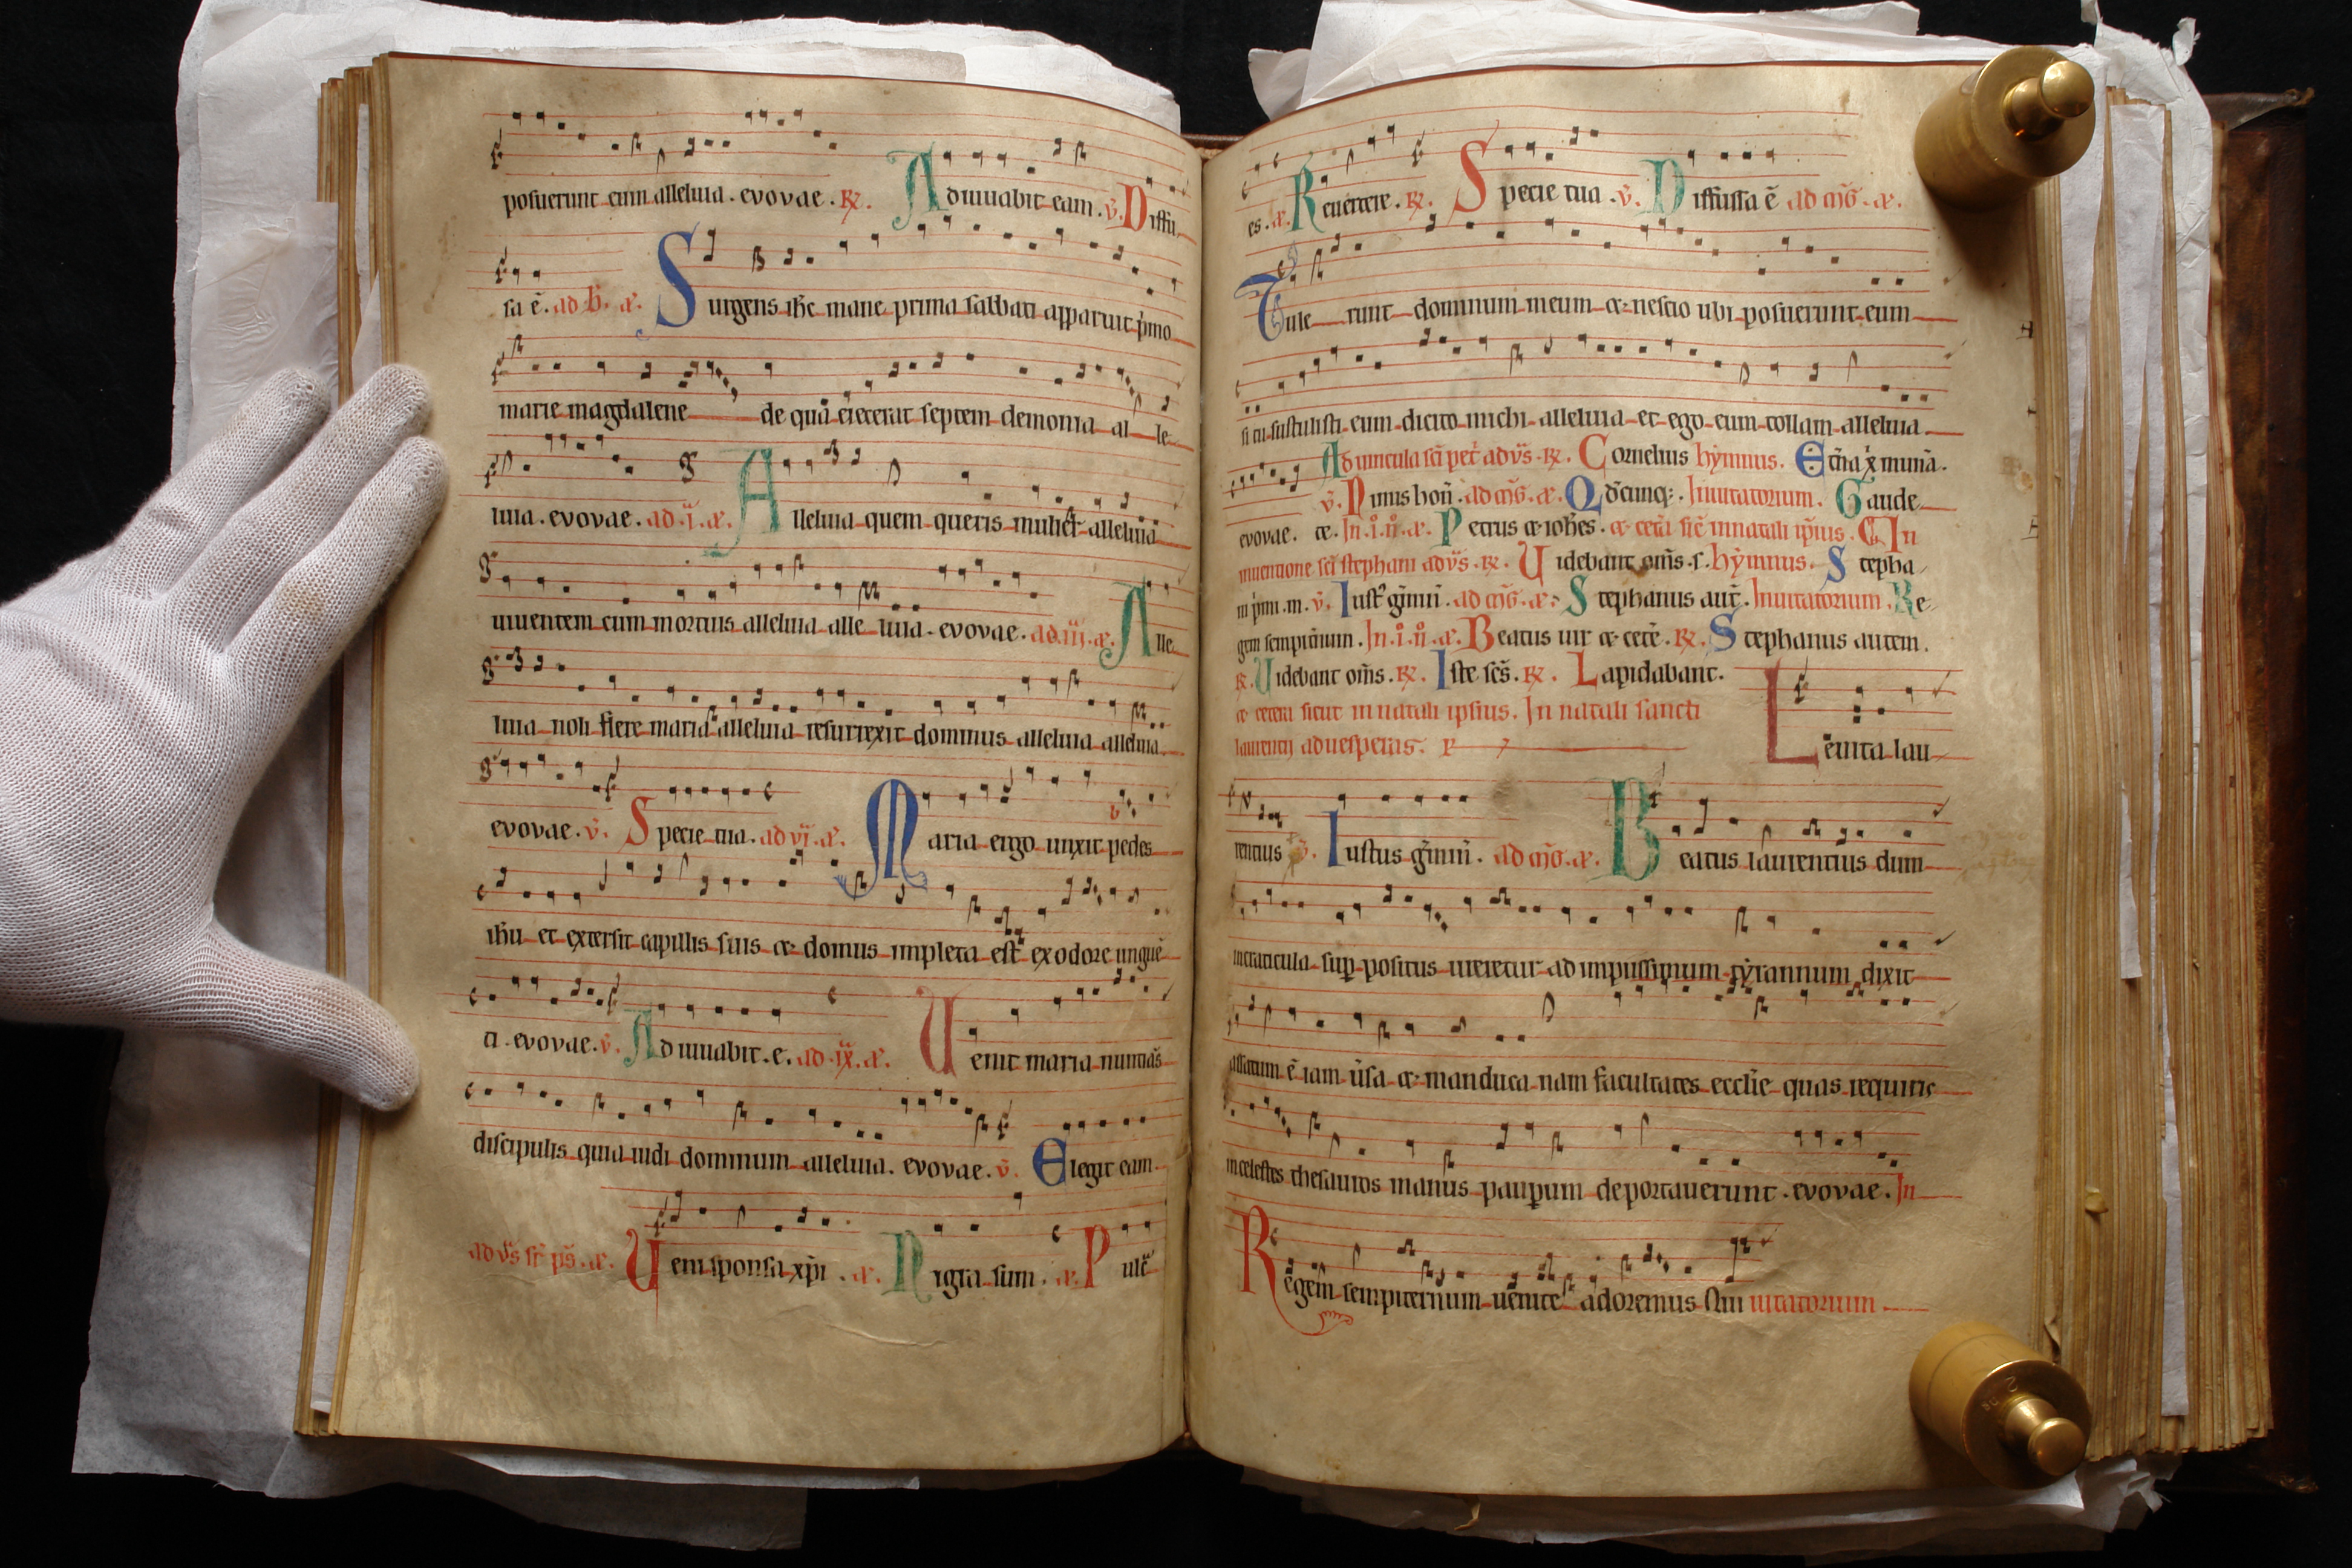 posuerunt eum alleluia . evovae . R. Adiuuabit eam . v. Diffu
sa ē . ad B. a. Surgens ihc mane prima sabbati apparuit p̄mo
marie magdalene de qua eiecerat septem demonia al le
luia . evovae . ad .i. a. Alleluia quem queris mulier alleluia
uiuentem cum mortuis alleluia alle luia . evovae . ad .iij. a. Alle
luia noli flere maria alleluia resurrexit dominus alleluia alleluia
evovae . v. Specie tua . ad vi. a. Maria ergo unxit pedes
ihu et extersit capillis suis et domus impleta est ex odore unguē
ti . evovae . v. Adiuuabit . e. ad .ix. a. Uenit maria nuntias
discipulis quia uidi dominum alleluia . evovae . v. Elegit eam
ad vs sr ps . a. Ueni sponsa xpi . a. Nigra sum . a. Pulc
es . a. Reuertere . R. Specie tua . v. Diffusa ē ad mg . a.
Tule runt dominum meum et nescio ubi posuerunt eum
si tu sustulisti eum dicito michi alleluia et ego eum tollam alleluia
Ad uincula sci pet ad vs . R. Cornelius hymnus . xp̄i munā .
evovae . v. ad mg . a. Qdcunq; . Inuitatorium . Gaude
te . In .i. n̄ . a. Petrus et iohes . et cetā sic in natali ipius . In
inuentione sci stephani ad vs . R. Uidebant oms . s . hymnus . Stepha
v. Iust gmin . ad mg . a. Stephanus aut . Inuitatorium . Re
gem sempitnum . In .i. n̄ . a. Beatus uir et cete . R. Stephanus autem .
R. Uidebant oms . R. Iste scs . R. Lapidabant .
et cetera sicut in natali ipsius . In natali sancti
laurentij ad uesperas . R Leuita lau
rentius v. Iustus gmin . ad mg . a. Beatus laurentius dum
in craticula sup positus ureretur ad impiissimum tyrannum dixit
assatum ē iam ūsa et manduca nam facultates ecclie quas requiris
in celestes thesauros manus paupum deportauerunt . evovae . In
Regem sempiternum uenite adoremus uitatorium